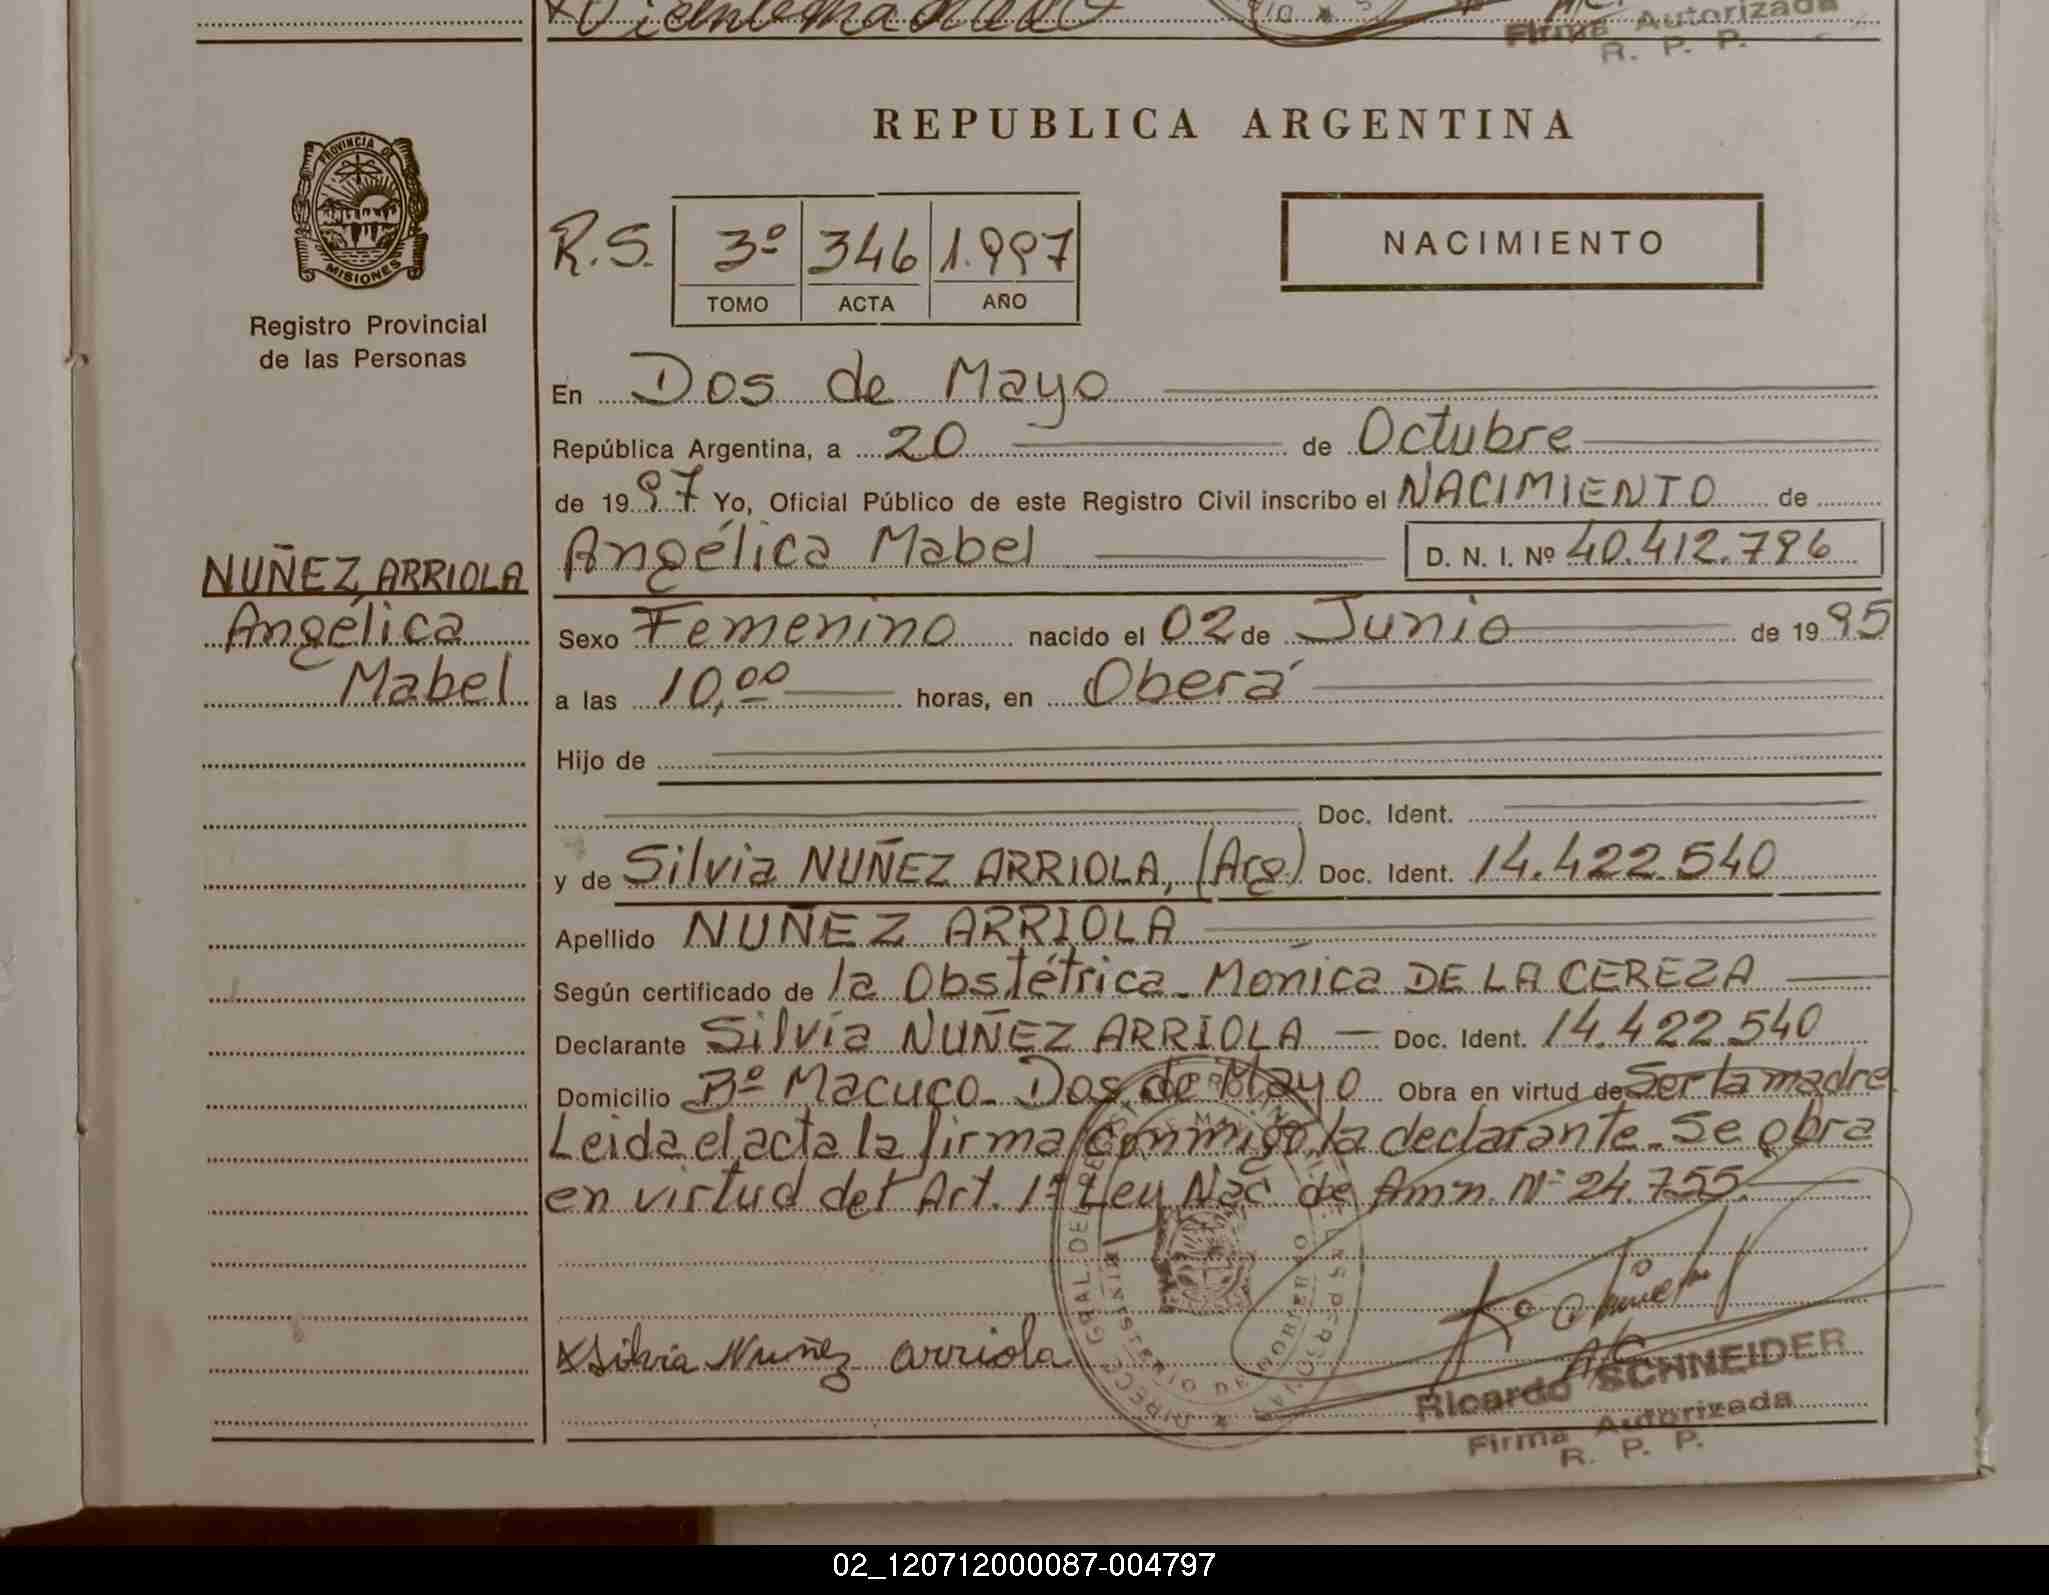 Firma Autorizada
R. P. P.
PROVINCIA DE
MISIONES
Registro Provincial
de las Personas
REPUBLICA ARGENTINA
R.S. 3º 346 1.997
TOMO ACTA AÑO
NACIMIENTO
En Dos de Mayo
República Argentina, a 20 de Octubre
de 1997 Yo, Oficial Público de este Registro Civil inscribo el NACIMIENTO de
NUÑEZ ARRIOLA
Angélica
Mabel
Angélica Mabel D. N. I. Nº 40.412.796
Sexo Femenino nacido el 02 de Junio de 1995
a las 10,00 horas, en Oberá
Hijo de
Doc. Ident.
y de Silvia NUÑEZ ARRIOLA, (Arg) Doc. Ident. 14.422.540
Apellido NUÑEZ ARRIOLA
Según certificado de la Obstétrica. Mónica DE LA CEREZA
Declarante Silvia NUÑEZ ARRIOLA — Doc. Ident. 14.422.540
Domicilio Bº Macuco. Dos de Mayo Obra en virtud de Ser la madre
Leida el acta la firma conmigo la declarante. Se obra
en virtud del Art. 1º Ley Nac de Amn. Nº 24.755.
x Silvia Nuñez arriola
Ricardo SCHNEIDER
Firma Autorizada
R. P. P.
02_120712000087-004797